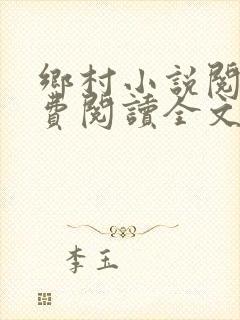 鄉村小說閱
費閱讀全文
李玉